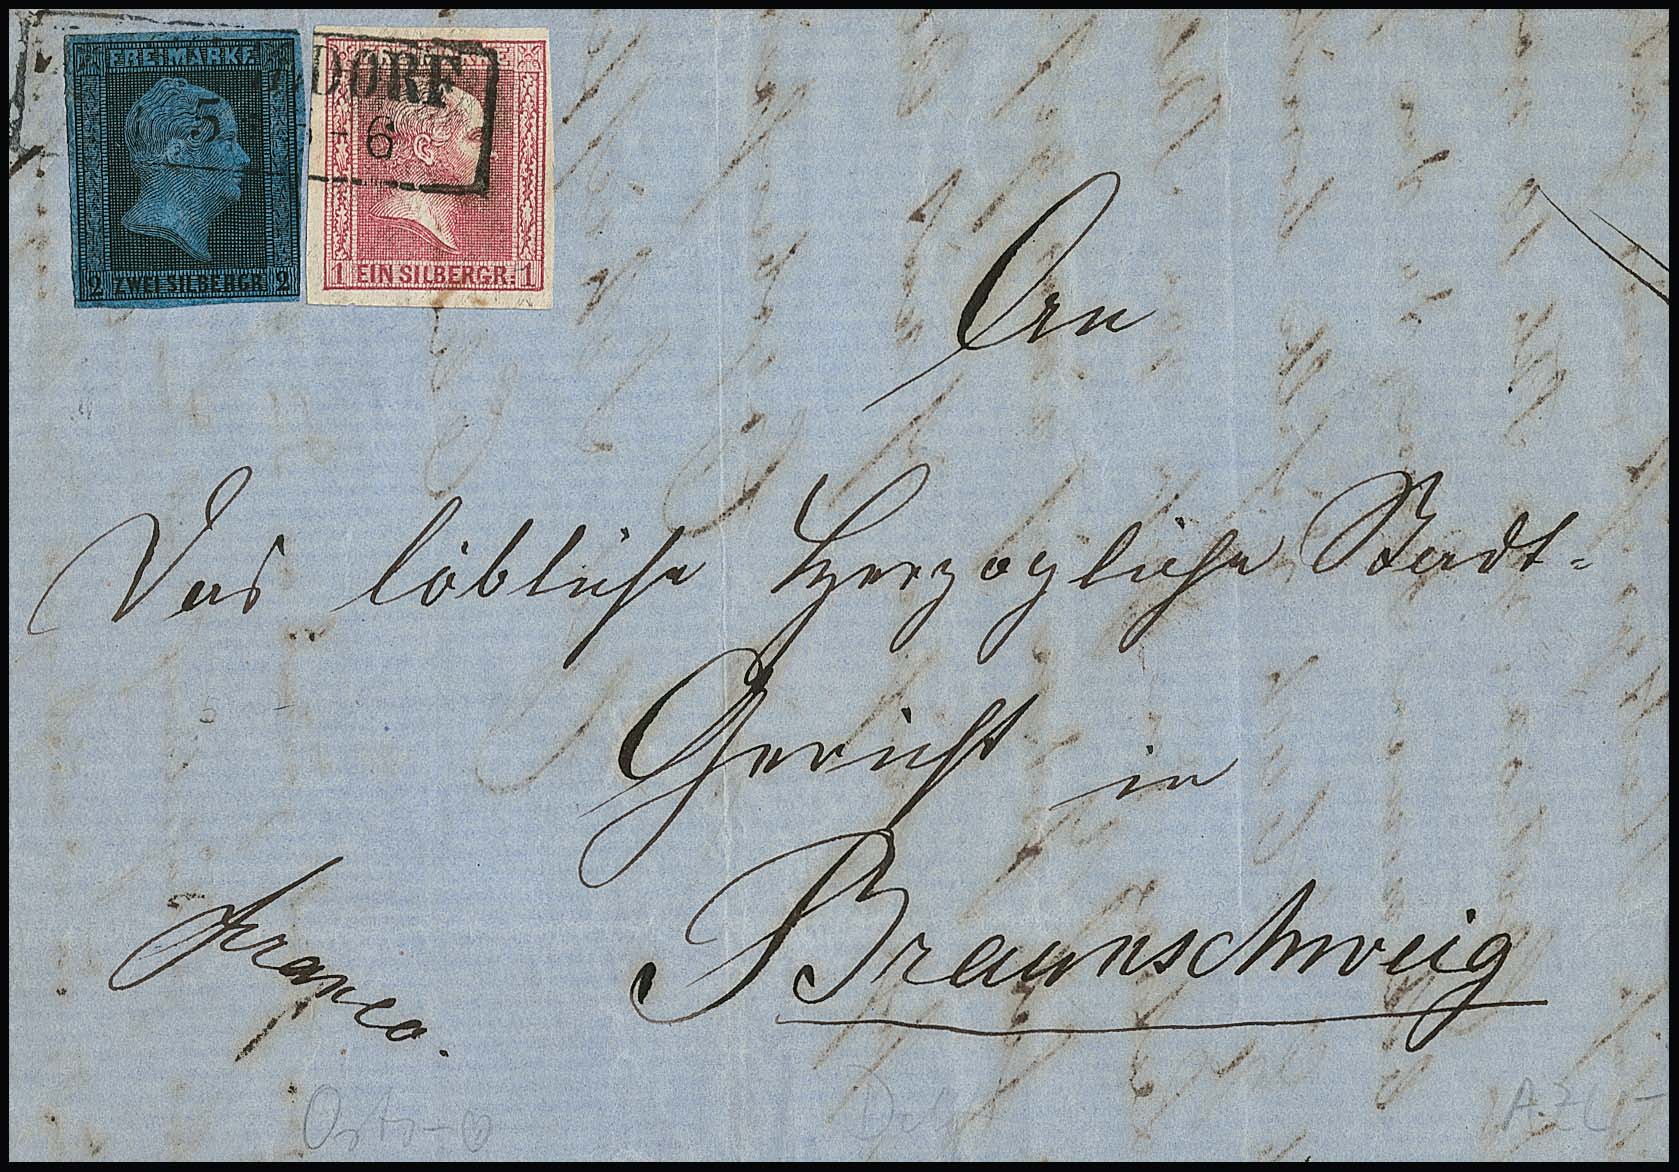 FREIMARKE
2 ZWEI SILBERGR. 2
DORF
5 - 6
1 EIN SILBERGR. 1
An
Das löbliche Herzogliche Stadt-
Gericht in
Braunschweig
franco.